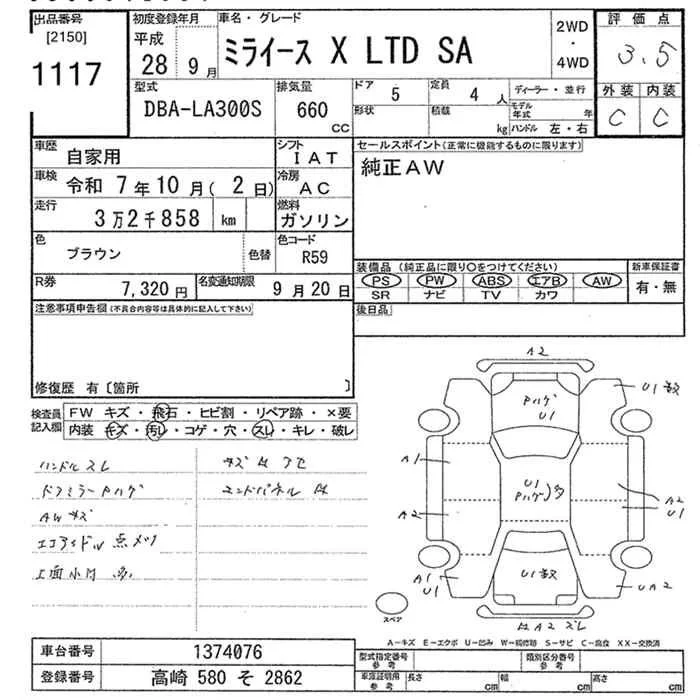 出品番号
[2150]
1117
初度登録年月
平成
28 9月
車名・グレード
ミライース X LTD SA
2WD
・
4WD
評価点
3.5
外装 内装
C C
型式
DBA-LA300S
排気量
660
CC
ドア 5
定員 4人
ディーラー・並行
形状
積載 kg
モデル年式 年
ハンドル 左・右
車歴 自家用
シフト IAT
車検 令和 7年10月(2日)
冷房 AC
走行 3万2千858 km
燃料 ガソリン
色 ブラウン
色替
色コード R59
R券 7,320円
名変通知期限 9月20日
セールスポイント(正常に機能するものに限ります)
純正AW
装備品 (純正品に限り○をつけてください)
PS PW ABS エアB AW
SR ナビ TV カワ
新車保証書
有・無
後日品
注意事項申告欄(不具合内容等は具体的に記入して下さい)
修復歴 有〔箇所 〕
検査員記入欄
FW キズ・飛石・ヒビ割・リペア跡・×要
内装 キズ・汚レ・コゲ・穴・スレ・キレ・破レ
ハンドルスレ
ドアミラーPハゲ
AWキズ
エコアイドル点メツ
エンドパネル
A2
U1
Pハゲ
U1
A1
U1
Pハゲ
A2
U1
A2
A1
U1
U1
UA2
A2 スレ
スペア
A-キズ E-エクボ U-凹み W-補修跡 S-サビ C-腐食 XX-交換済
車台番号 1374076
登録番号 高崎 580 そ 2862
型式指定番号
参考
類別区分番号
参考
車庫証明用
参考
長さ cm
幅 cm
高さ cm